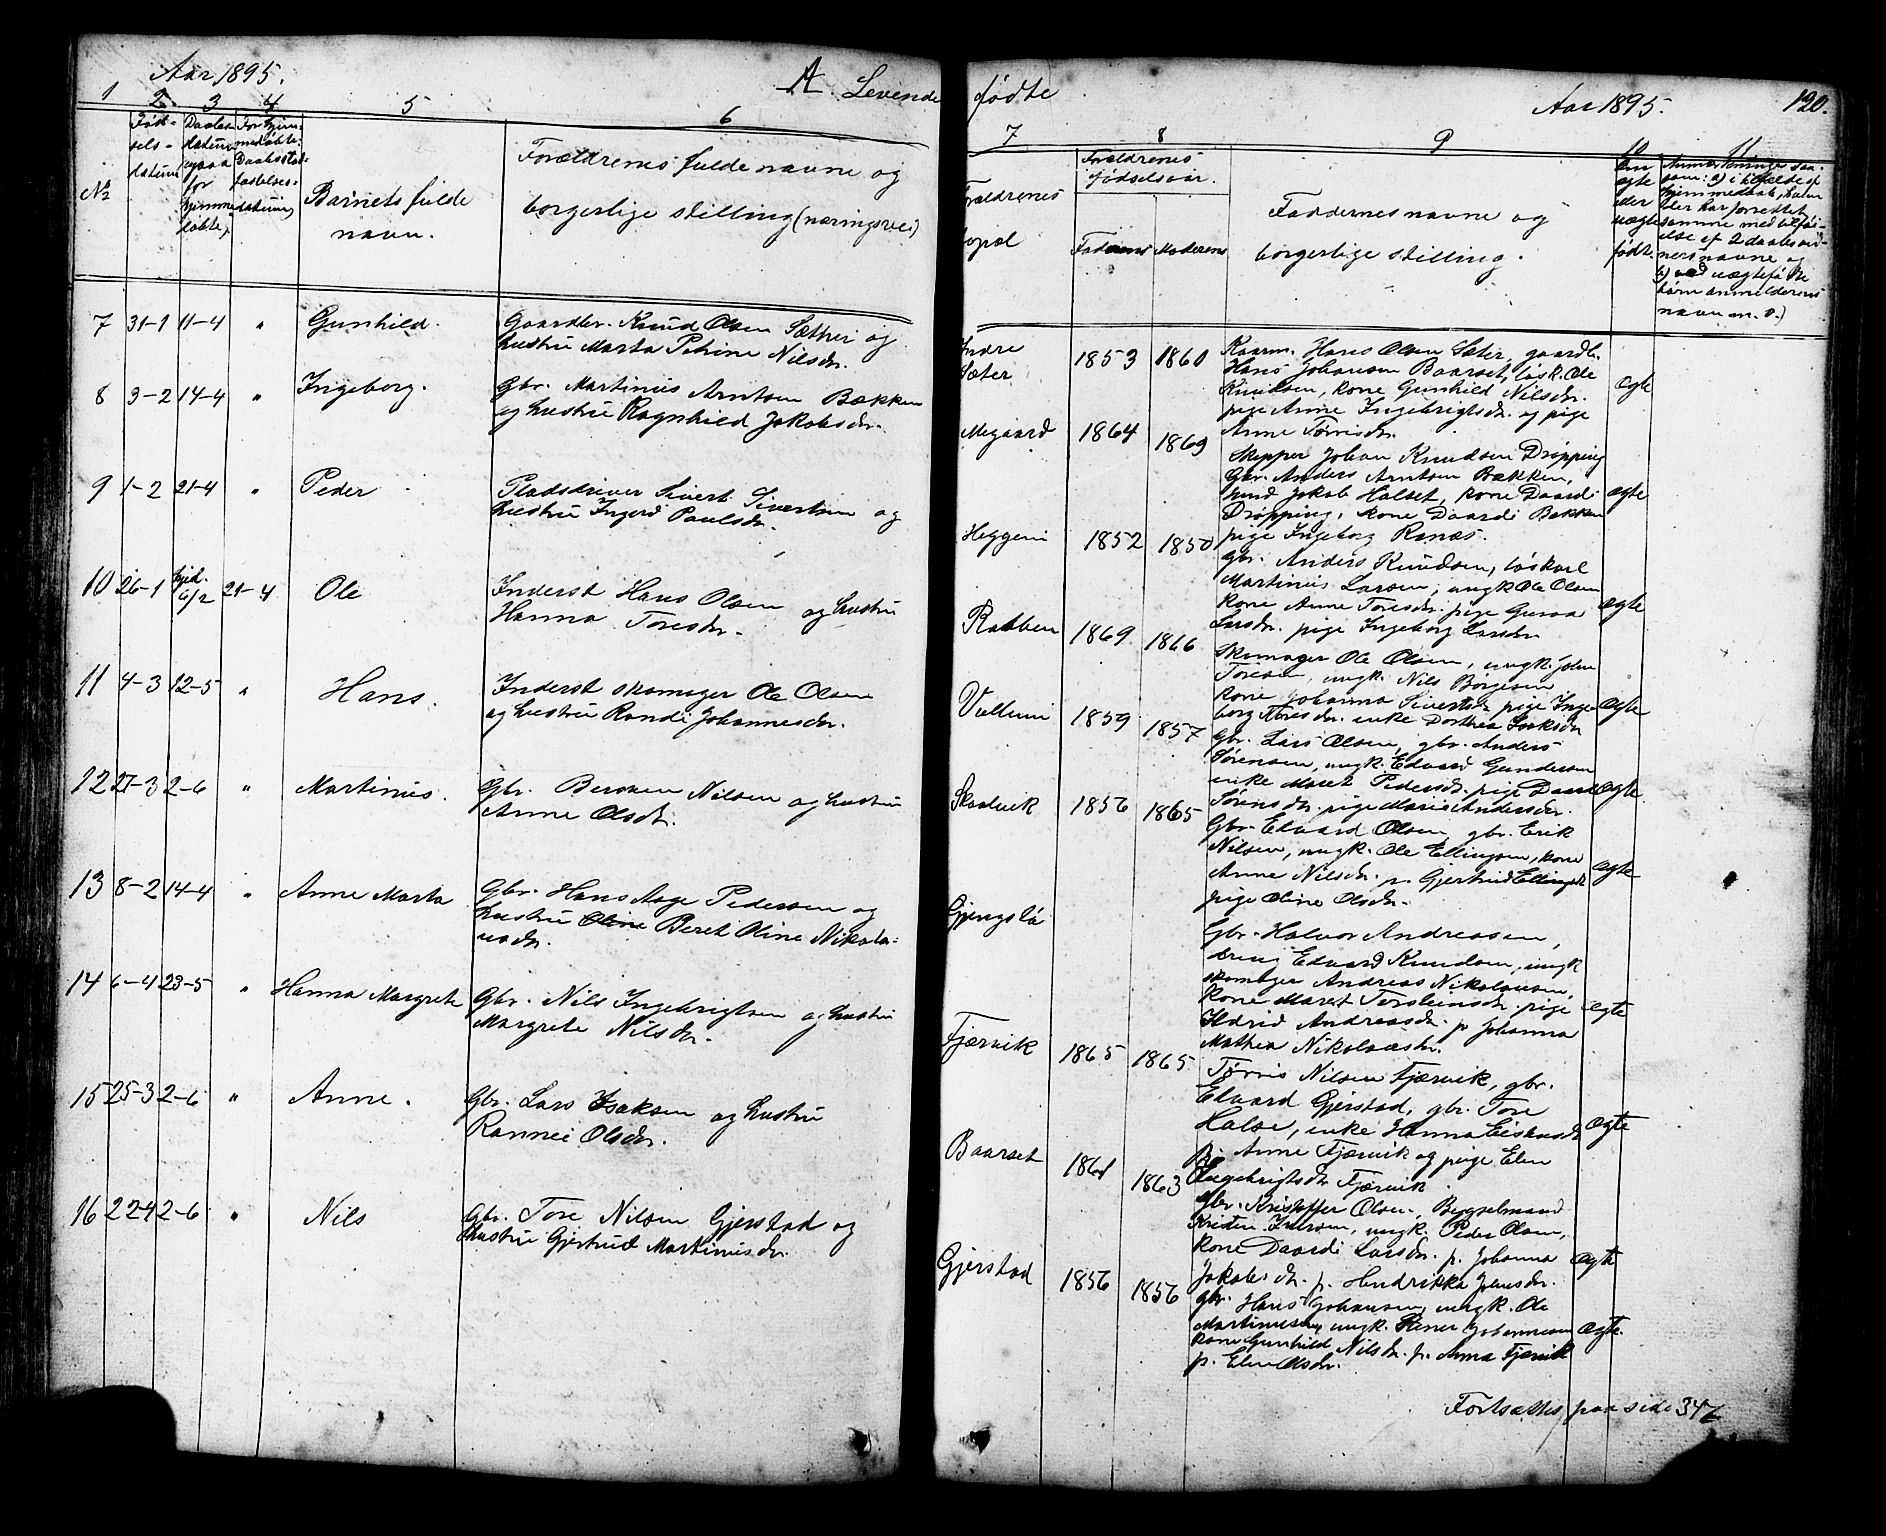 Aar 1895.
A. Levende
1 2. 3 4 5 6
№
Fød-
sels-
datum
Daabs-
datum
for
hjemme-
døbte
Barnets fulde
navn.
Forældrenes fulde navne og
borgerlige stilling (næringsvei)
7 31-1 11-4 " Gunhild. Gaardbr. Knud Olsen Sæther og
hustru Marta Petrine Nilsdr.
8 3-2 14-4 " Ingeborg. Gbr. Martinus Arntsen Bækken
og hustru Ragnhild Jakobsdr.
9 1-2 21-4 " Peder Pladsdriver Sivert Sivertsen og
hustru Ingerd Paulsdr.
10 26-1 hjed. 6/2 21-4 Ole Inderst Hans Olsen og hustru
Hanna Toresdr.
11 4-3 12-5 " Hans. Inderst skomager Ole Olsen
og hustru Randi Johannesdr.
12 27-3 2-6 " Martinus. Gbr. Nilsen og hustru
Anne Olsdr.
13 8-2 14-4 " Anne Marta Gbr. Hans Aage Pedersen og
hustru Oline Beret Oline Nikola-
usdr.
14 6-4 23-5 " Hanna Margrete Gbr. Nils Ingebrigtsen og hustru
Margrete Nilsdr.
15 25-3 2-6 " Anne. Gbr. Lars Isaksen og hustru
Rannei Olsdr.
16 22-4 2-6 " Nils Gbr. Tore Nilsen Gjerstad og
hustru Gjertrud Martinusdr.
fødte
Aar 1895.
120.
7 8 9 10 11
Forældrenes
bopæl
Forældrenes
fødselsaar.
Faderens Moderens
Faddernes navne og
borgerlige stilling.
ægte
eller
uægte
født.
Anmærkninger saa-
som: a) i tilfælde af
hjemmedaab, hvem
der har forrettet
samme med tilføi-
else af 2 daabsvid-
ners navne og
b) ved uægtefødte
børn anmelderens
navn m. v.)
Indre
Sæter 1853 1860 Kaarm. Hans Olsen Sæter, gaardb.
Hans Johansen Baarset, løsk. Ole
Knudsen, kone Gunhild Nilsdr.
pige Anne Ingebrigtsdr. og pige
Anne Tørrisdr. ægte
Megaard 1864 1869 Skipper Johan Knudsen Drøpping
Gbr. Anders Arntsen Bækken,
Jakob Halset, kone Daardi
Drøpping, kone Daardi Bækken
pige Ingeborg Ranæs. ægte
Heggem 1852 1850 gbr. Anders Knudsen, løskarl
Martinus Larsen, ungk. Ole Olsen
kone Anne Toresdr. pige Guroa
Larsdr. pige Ingeborg Larsdr. ægte
Rabben 1869 1866 Skomager Ole Olsen, ungk. John
Toresen, ungk. Nils Børgesen
kone Johanna Sivertsdr. pige Inge-
borg Toresdr. enke Dorthea Isaksdr. ægte
Vullum 1859 1857 gbr. Lars Olsen, gbr. Anders
Sørensen, ungk. Edvard Gundersen
enke Maret Pedersdr. pige
Sørensdr. pige Marie Andersdr. ægte
Skaalvik 1856 1865 Gbr. Edvard Olsen, gbr. Erik
Nilsen, ungk. Ole Ellingsen, kone
Anne Nilsdr. p. Gjertrud Ellingsdr.
pige Oline Olsdr. ægte
Gjengstø Gbr. Halvor Andreassen,
dreng Edvard Knudsen, ungk
skomager Andreas Nikolausen,
kone Maret Torsteinsdr. pige
Andreasdr. p Johanna
Mathea Nikolausdr. ægte
Fjærvik 1865 1865 Tørris Nilsen Fjærvik, gbr.
Edvard Gjerstad, gbr. Tore
Halse, enke Hanna
pi. Anne Fjærvik og pige Elen
Ingebrigtsdr. Fjærvik. ægte
Baarset 1861 1863 gbr. Kristoffer Olsen, Bergselmand
Kristen Iversen, ungk. Peder Olsen,
kone Daardi Larsdr. p. Johanna
Jakobsdr. p. Hendrikka Johnsdr. ægte
Gjerstad 1856 1856 gbr. Hans Johansen, ungk. Ole
Martinussen, ungk. Johannesen
kone Gunhild Nilsdr. p. Anna Fjærvik
p. Elen Olsdr. ægte.
Fortsættes paa side 347